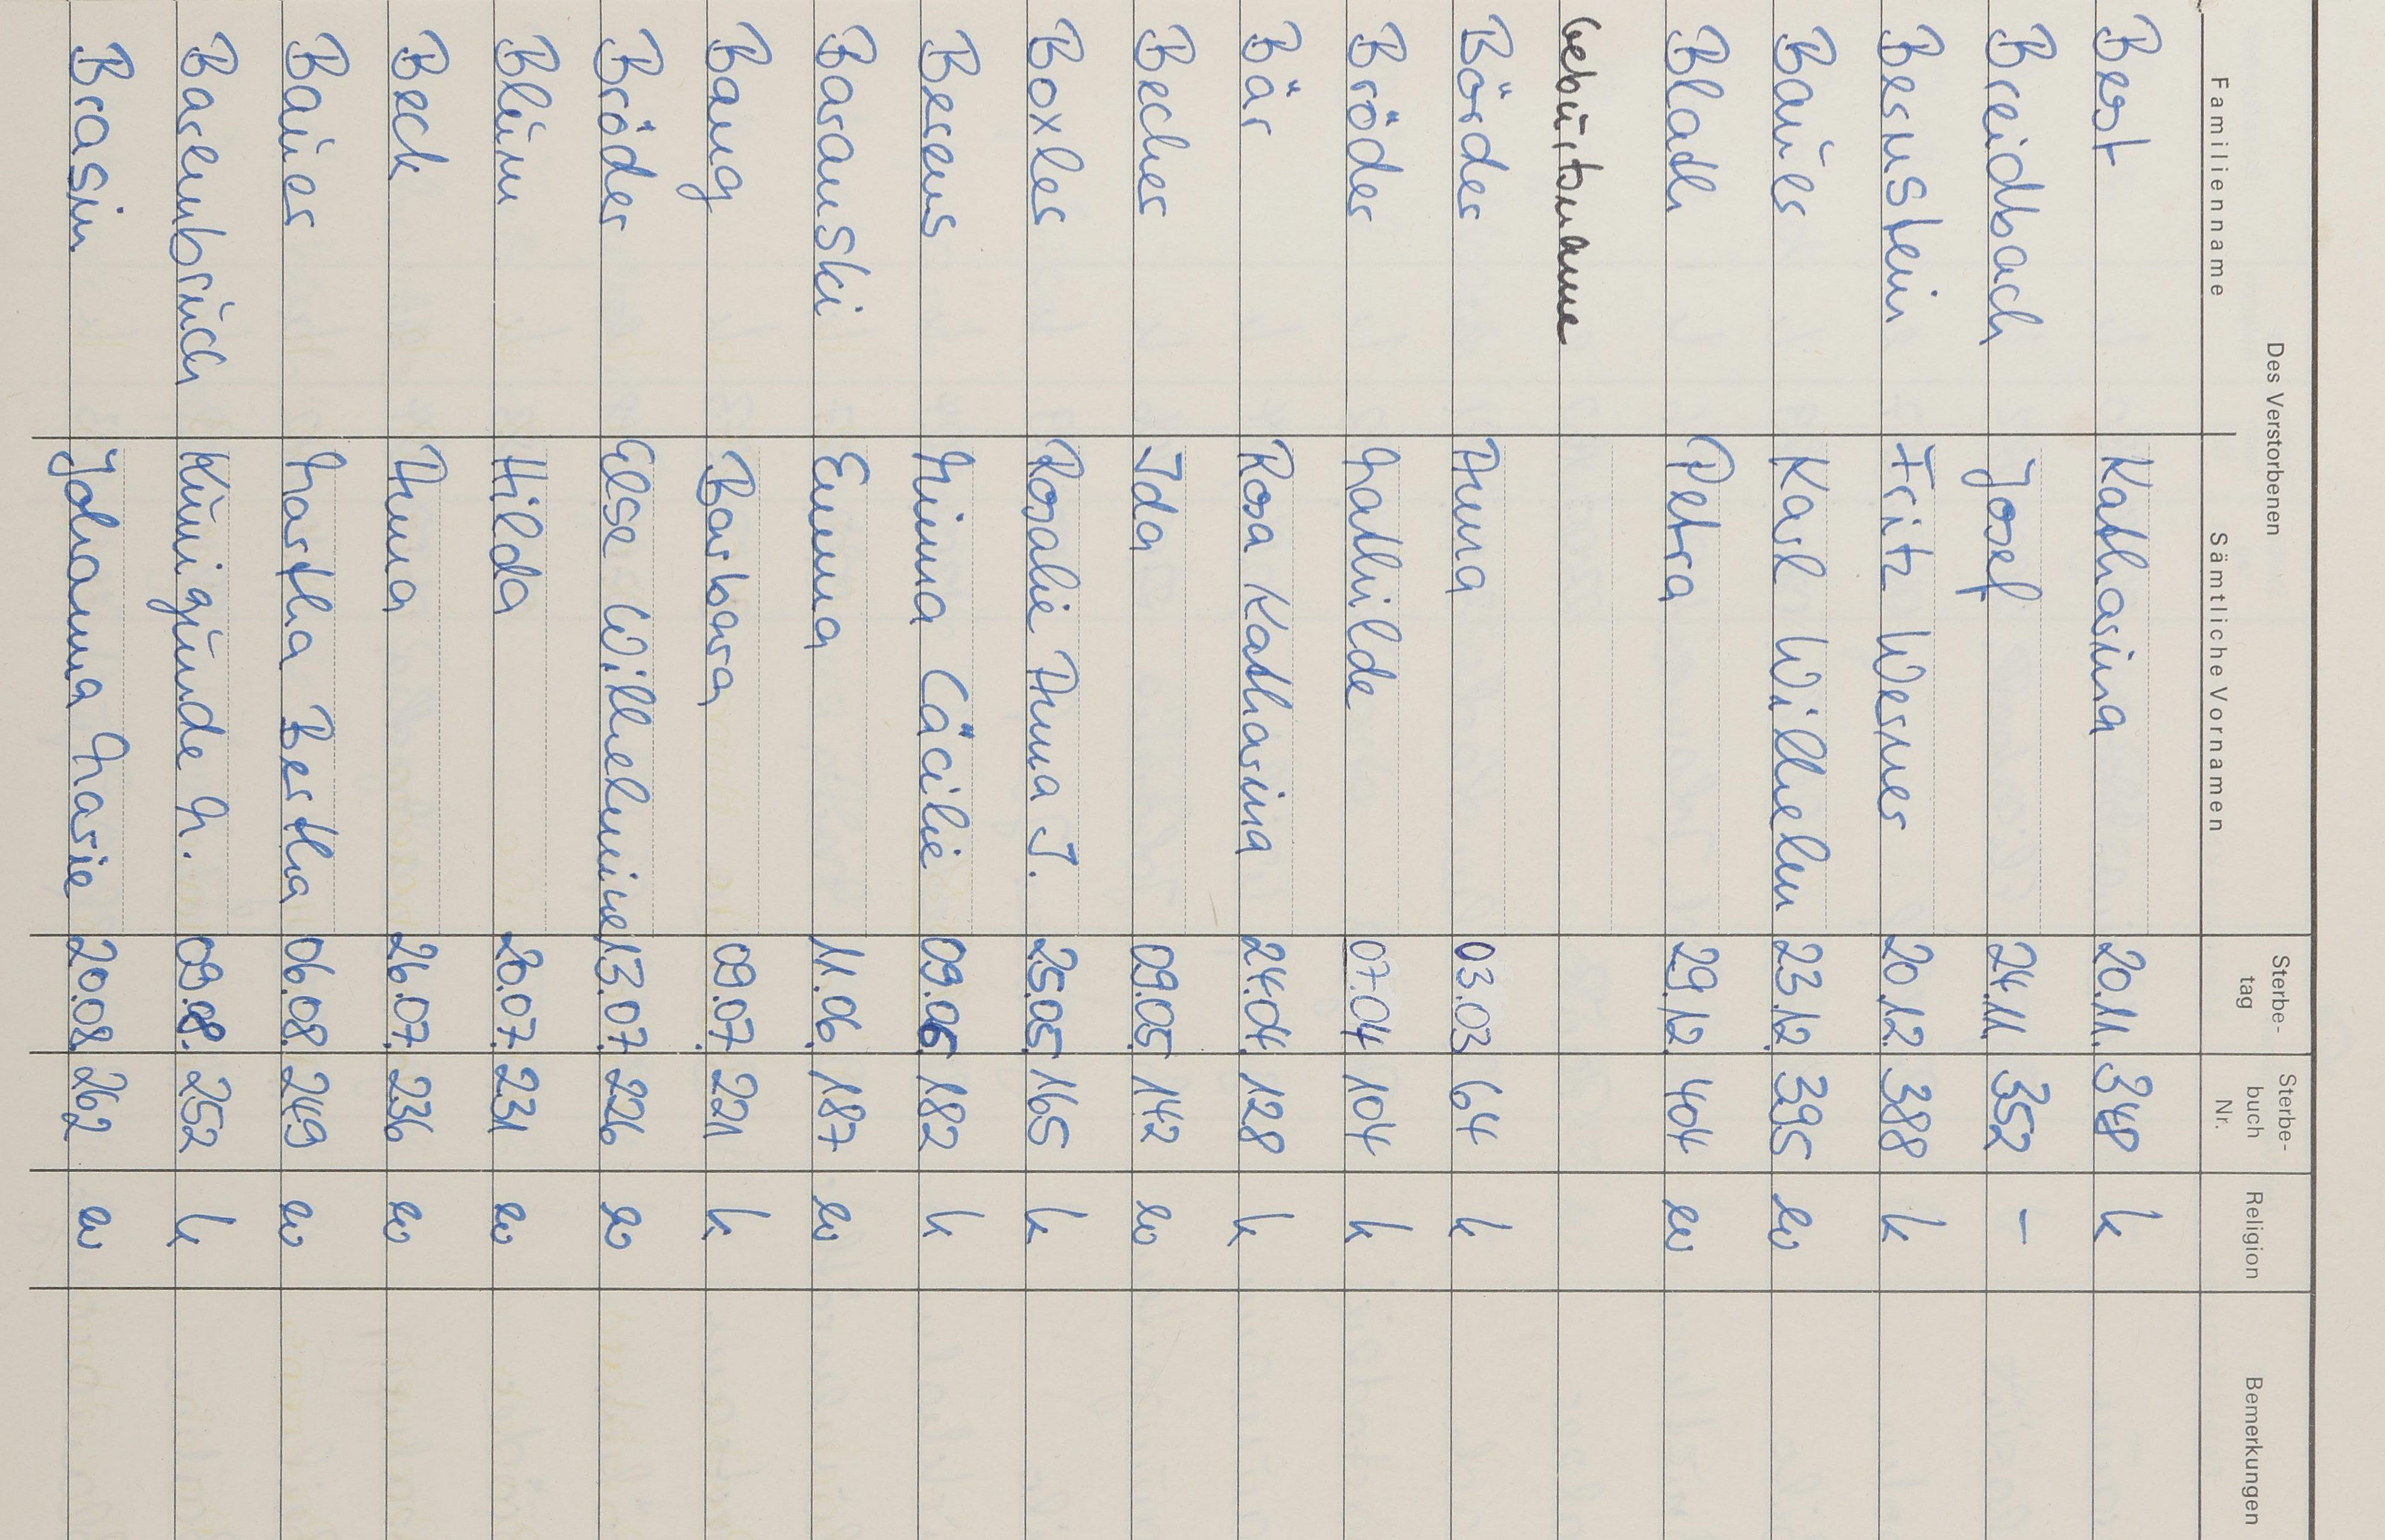 Des Verstorbenen
Familienname Sämtliche Vornamen Sterbe-tag Sterbe-buch Nr. Religion Bemerkungen
Best Katharina 20.11. 348 k
Breidbach Josef 24.11. 352 –
Bernstein Fritz Werner 20.12. 388 k
Bauer Karl Wilhelm 23.12. 395 ev
Blath Petra 29.12. 404 ev
Geburtsname
Börder Anna 03.03 64 k
Bröder Mathilde 07.04 104 k
Bär Rosa Katharina 24.04. 128 k
Becher Ida 09.05 142 ev
Boxler Rosalie Anna J. 25.05. 165 k
Berens Minna Cäcilie 09.06 182 k
Baranski Emma 11.06. 187 ev
Bang Barbara 09.07. 221 k
Bröder Else Wilhelmine 13.07. 226 ev
Blum Hilda 20.07. 231 ev
Beck Anna 26.07. 236 ev
Bauer Martha Bertha 06.08. 249 ev
Barenbruch Kunigunde M. 09.08. 252 k
Brasin Johanna Marie 20.08. 262 ev